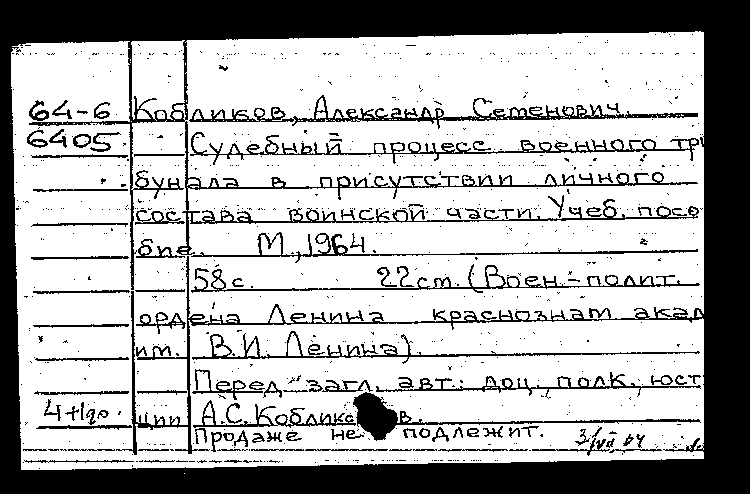 64-6 Кобликов, Александр Семенович.
6405 Судебный процесс военного три
бунала в присутствии личного
состава воинской части. Учеб. посо
бие. М., 1964.
58 с. 22 см. (Воен.-полит.
ордена Ленина краснознам акад
им. В.И. Ленина).
Перед загл. авт.: доц. полк. юст
ции А.С. Кобликов.
Продаже не подлежит.